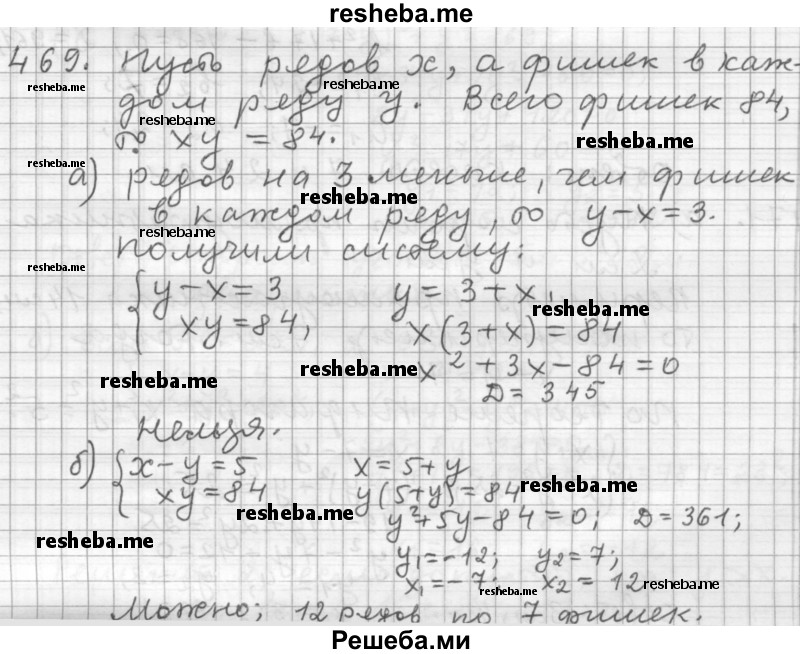 resheba.me
469. Пусть рядов x, а фишек в каж-
resheba.me resheba.me
дом ряду y. Всего фишек 84,
resheba.me
то xy = 84.
resheba.me
resheba.me
а) рядов на 3 меньше, чем фишек
resheba.me
в каждом ряду, то y-x=3.
resheba.me
Получили систему:
resheba.me
y-x=3 y=3+x,
resheba.me
xy=84, x(3+x)=84
resheba.me x²+3x-84=0
resheba.me
D=345
Нельзя.
б) x-y=5 x=5+y
resheba.me
xy=84 y(5+y)=84
resheba.me
y²+5y-84=0; D=361;
resheba.me
y₁=-12; y₂=7;
x₁=-7; x₂=12
resheba.me resheba.me
Можно; 12 рядов по 7 фишек.
Решеба.ми